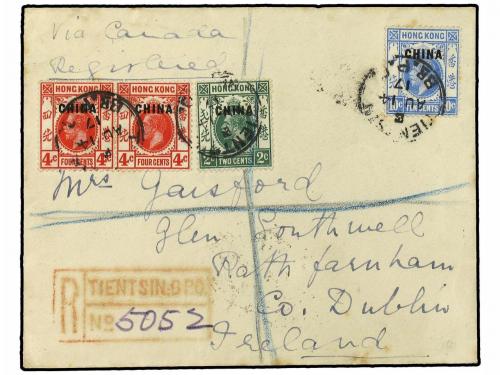 Via Canada
Registered
HONG KONG
CHINA
FOUR CENTS
4c
HONG KONG
CHINA
FOUR CENTS
4c
HONG KONG
CHINA
TWO CENTS
2c 2c
HONG KONG
CHINA
TEN CENTS
10c
Mrs Gaisford
Glen Southwell
Rathfarnham
Co. Dublin
Ireland
R TIENTSIN.B.P.O.
No 5052